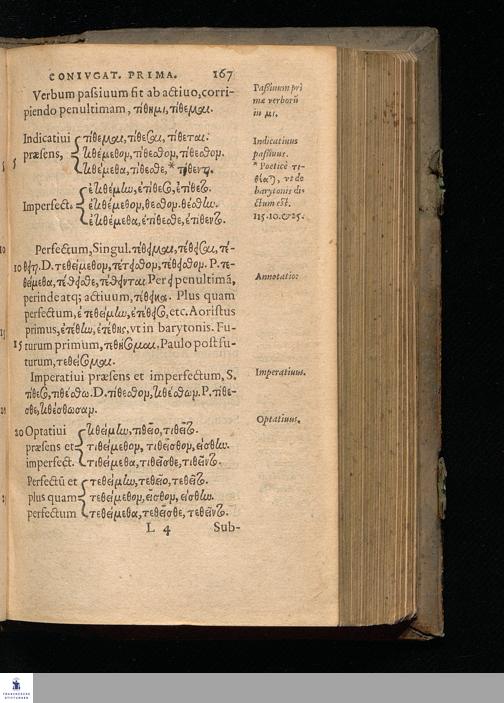 CONIVGAT. PRIMA. 167
Verbum paſsiuum fit ab actiuo, corri-
piendo penultimam, τίθημι, τίθεμαι.
Indicatiui τίθεμαι, τίθεσαι, τίθεται.
præſens, τιθέμεθον, τίθεσθον, τίθεσθον.
τιθέμεθα, τίθεσθε, * τίθενται.
ἐτιθέμην, ἐτίθεσο, ἐτίθετο.
Imperfect. ἐτιθέμεθον, θεσθον, θέσθην.
ἐτιθέμεθα, ἐτίθεσθε, ἐτίθεντο.
Perfectum, Singul. τέθειμαι, τέθεισαι, τέ-
10 θειται. D. τεθείμεθον, τέτεισθον, τέθεισθον. P. τε-
θείμεθα, τέθεισθε, τέθεινται. Per ει penultimã,
perinde atq; actiuum, τέθεικα. Plus quam
perfectum, ἐτεθείμην, ἐτέθεισο, etc. Aoriſtus
primus, ἐτέθην, ἐτέθης, vt in barytonis. Fu-
15 turum primum, τεθήσομαι. Paulo poſt fu-
turum, τεθείσομαι.
Imperatiui præſens et imperfectum, S.
τίθεσο, τιθέσθω. D. τίθεσθον, τιθέσθων. P. τίθε-
σθε, τιθέσθωσαν.
20 Optatiui τιθείμην, τιθεῖο, τιθεῖτο.
præſens et τιθείμεθον, τιθεῖσθον, είσθην.
imperfect. τιθείμεθα, τιθεῖσθε, τιθεῖντο.
Perfectũ et τεθείμην, τεθεῖο, τεθεῖτο.
plus quam τεθείμεθον, εῖσθον, είσθην.
perfectum τεθείμεθα, τεθεῖσθε, τεθεῖντο.
L 4 Sub-
Paſsiuum pri
mæ verborũ
in μι.
Indicatiuus
paſsiuus.
* Poeticè τι-
θέαται, vt de
barytonis di-
ctum eſt.
115.10.&25.
Annotatio:
Imperatiuus.
Optatiuus.
FRANCKESCHE
STIFTUNGEN